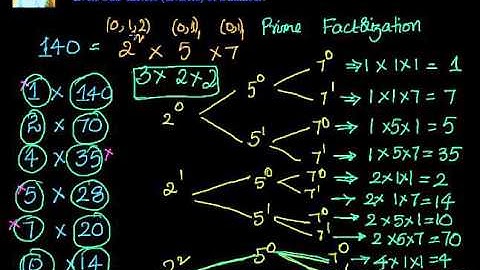 (0,1,2) (0,1) (0,1) Prime Factorization
140 = 2 × 5 × 7
3 × 2 × 2
1 × 140
2 × 70
4 × 35
5 × 28
7 × 20
2⁰ 5⁰ 7⁰ ⇒ 1 × 1 × 1 = 1
7¹ ⇒ 1 × 1 × 7 = 7
5¹ 7⁰ ⇒ 1 × 5 × 1 = 5
7¹ ⇒ 1 × 5 × 7 = 35
2¹ 5⁰ 7⁰ ⇒ 2 × 1 × 1 = 2
7¹ ⇒ 2 × 1 × 7 = 14
5¹ 7⁰ ⇒ 2 × 5 × 1 = 10
7¹ ⇒ 2 × 5 × 7 = 70
2² 5⁰ 7⁰ ⇒ 4 × 1 × 1 = 4